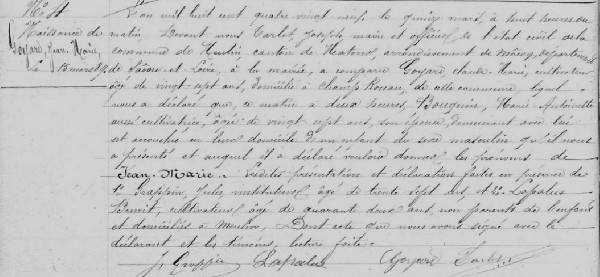 Naissance de
Goyard, Jean-Marie,
le 15 mars 89
L'an mil huit cent quatre vingt neuf le quinze mars, à huit heures du
matin, Devant nous Carlet, Joseph, maire et officier de l'état civil de la
commune de canton de Matour, arrondissement de Mâcon, département
de Saône-et-Loire, à la mairie, a comparu Goyard, Claude-Marie, cultivateur,
âgé de vingt-sept ans, domicilié à de cette commune, lequel
nous a déclaré que, ce matin à deux heures, Marie-Antoinette
aussi cultivatrice, âgée de vingt sept ans, son épouse, demeurant avec lui
est accouchée en leur domicile d'un enfant du sexe masculin qu'il nous
a présenté et auquel il a déclaré vouloir donner les prénoms de
Jean-Marie. - présentation et déclaration faites en présence de
1° Jules, instituteur, âgé de trente sept ans, et 2°
Benoît, cultivateur, âgé de quarante deux ans, non parents de l'enfant
et domiciliés à Dont acte que nous avons signé avec le
déclarant et les témoins, lecture faite.
Goyard Carlet